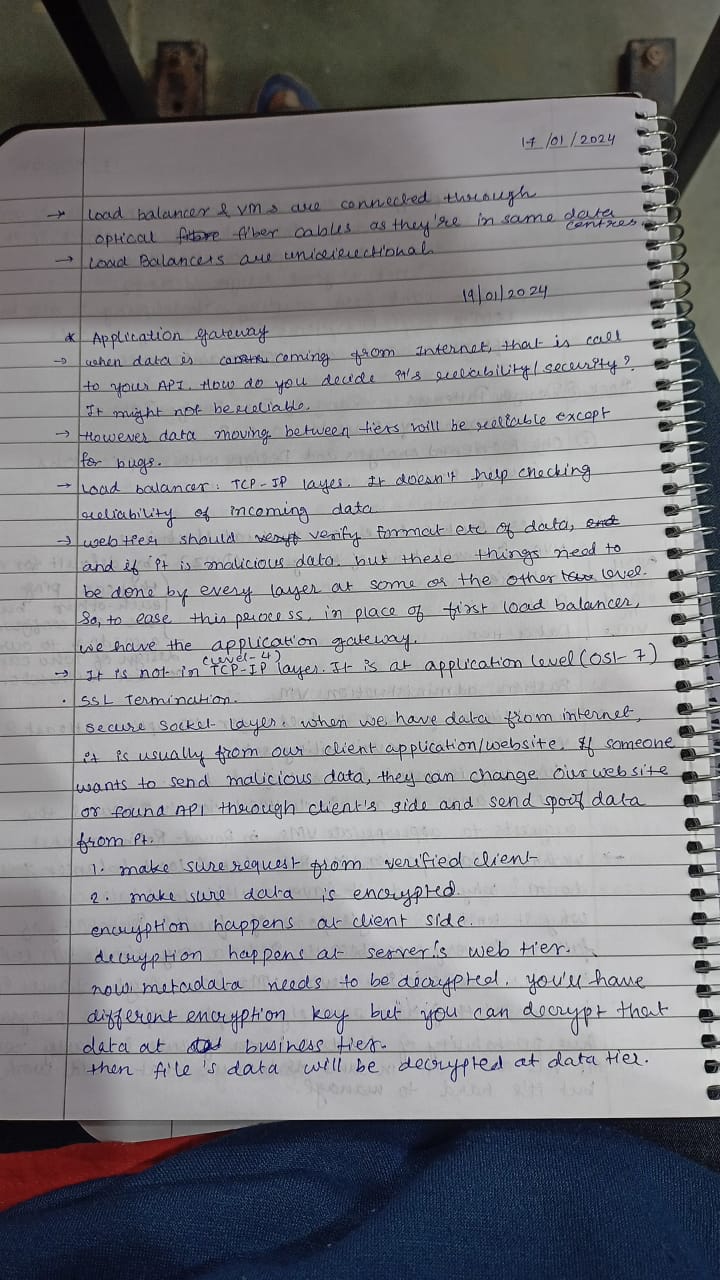 17/01/2024
→ Load balancer & VMs are connected through
optical fiber cables as they're in same data centres.
→ Load Balancers are unidirectional.
19/01/2024
* Application gateway
→ when data is coming from Internet, that is call
to your API. How do you decide it's reliability/security?
It might not be reliable.
→ However data moving between tiers will be reliable except
for bugs.
→ Load balancer: TCP-IP layer. It doesn't help checking
reliability of incoming data
→ web tier should verify format etc of data,
and if it is malicious data. but these things need to
be done by every layer at some or the other level.
So, to ease this process, in place of first load balancer,
we have the application gateway.
→ It is not in TCP-IP (level-4) layer. It is at application level (OSI-7)
· SSL Termination.
Secure socket layer. when we have data from internet,
it is usually from our client application/website. If someone
wants to send malicious data, they can change our website
or found API through client's side and send spoof data
from it.
1. make sure request from verified client
2. make sure data is encrypted.
encryption happens at client side.
decryption happens at server's web tier.
now, metadata needs to be decrypted. you'll have
different encryption key but you can decrypt that
data at business tier.
then file's data will be decrypted at data tier.